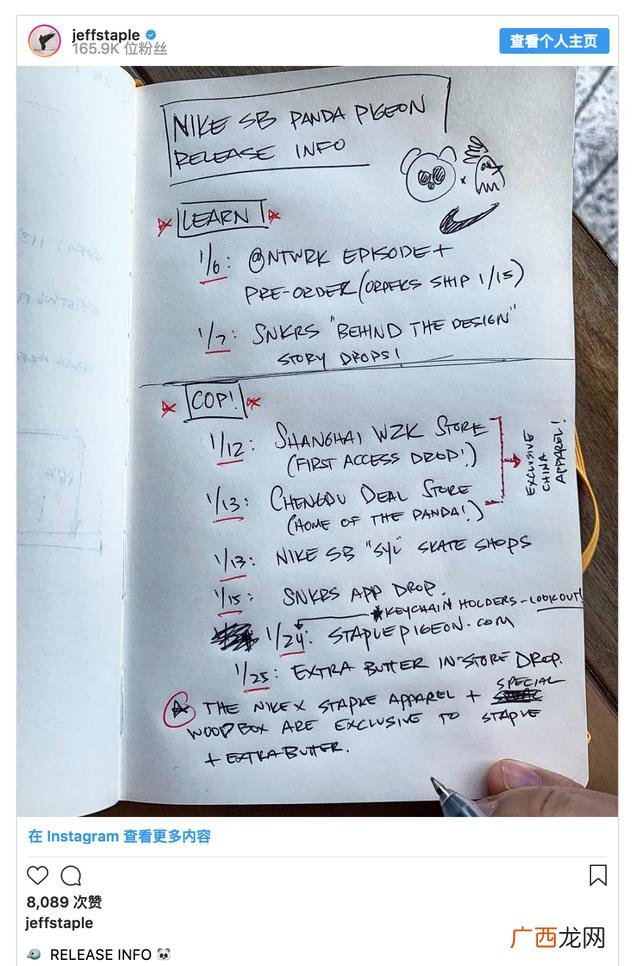 jeffstaple
165.9K 位粉丝
查看个人主页
NIKE SB PANDA PIGEON
RELEASE INFO
LEARN
1/6: @NTWRK EPISODE +
PRE-ORDER (ORDERS SHIP 1/15)
1/7: SNKRS "BEHIND THE DESIGN"
STORY DROPS!
COP!
1/12: SHANGHAI WZK STORE
(FIRST ACCESS DROP!)
1/13: CHENGDU DEAL STORE
(HOME OF THE PANDA!)
EXCLUSIVE
CHINA
APPAREL!
1/13: NIKE SB "SYL" SKATE SHOPS
1/15: SNKRS APP DROP.
*KEYCHAIN HOLDERS - LOOKOUT!
1/24: STAPLEPIGEON.COM
1/25: EXTRA BUTTER IN-STORE DROP.
THE NIKE X STAPLE APPAREL + SPECIAL
WOOD BOX ARE EXCLUSIVE TO STAPLE
+ EXTRA BUTTER.
在 Instagram 查看更多内容
8,089 次赞
jeffstaple
RELEASE INFO
广西龙网